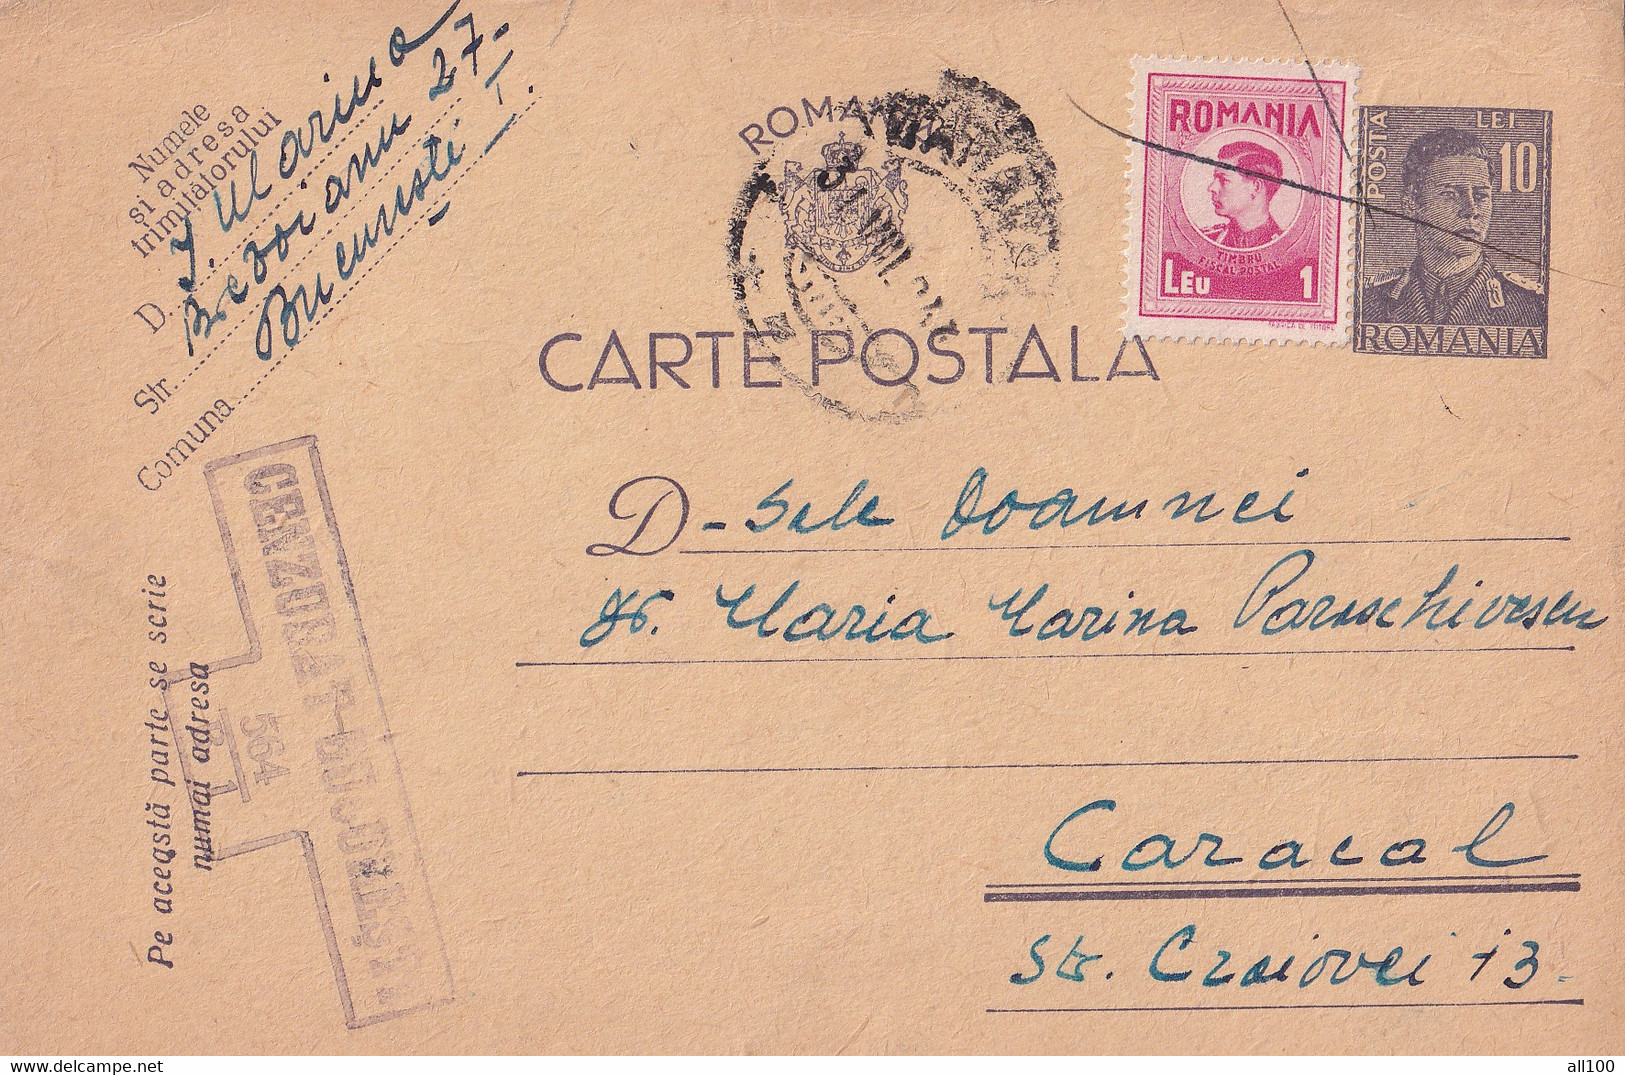 Numele
și adresa
trimițătorului
D. J. Marina
Str. Brezoianu 27-
Comuna București I.
ROMANIA
CARTE POSTALA
ROMANIA
TIMBRU
FISCAL POSTAL
LEU 1
FABRICA DE TIMBRE
POSTA
LEI
10
ROMANIA
31 VIII
CENZURAT
564
Pe această parte se scrie
numai adresa
D-Sale Doamnei
Dr. Maria Marina Paraschivescu
Caracal
Str. Craiovei 13.
all100
delcampe.net